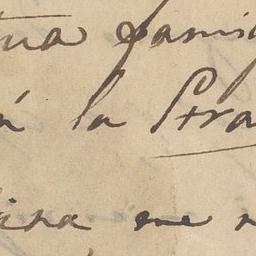 tua famig
à la Stra
ina, me n